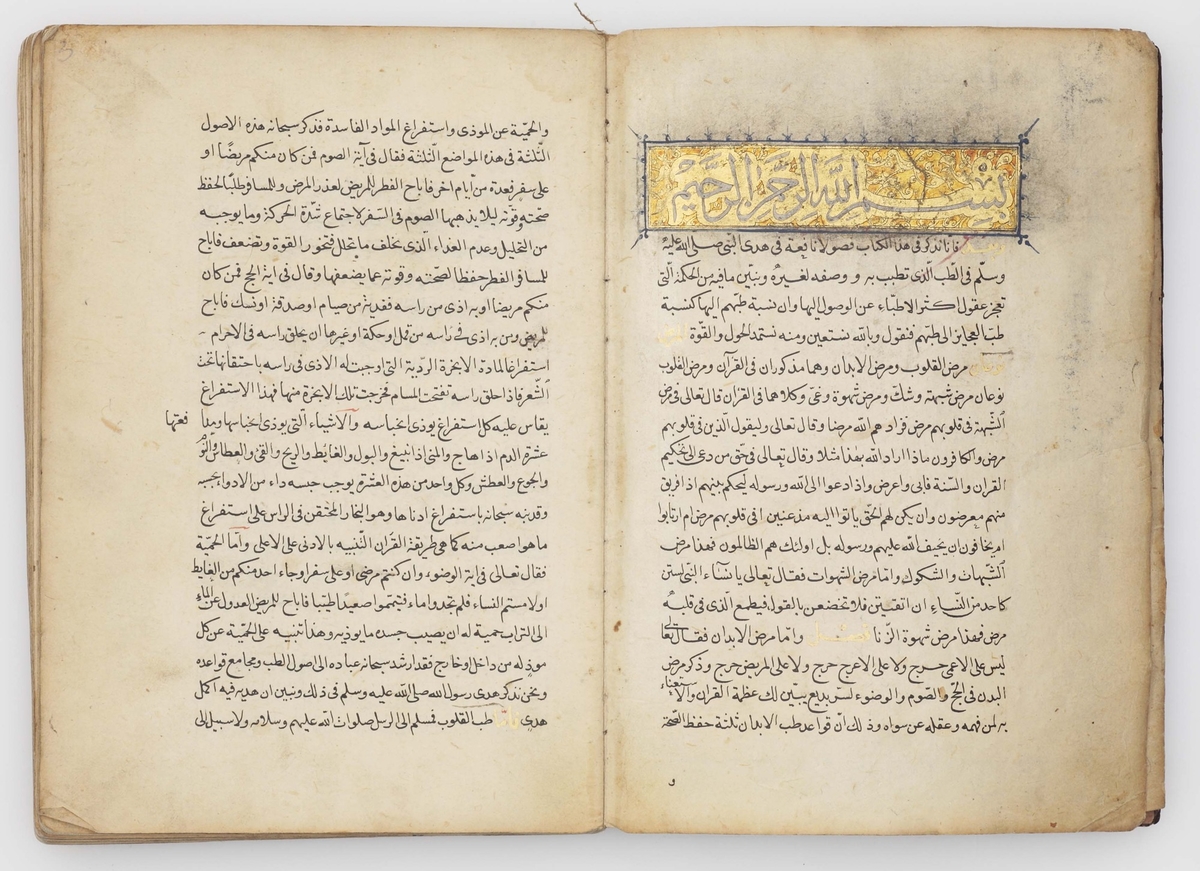 بسم الله الرحمن الرحيم
فانا نذكر فى هذا الكتاب فصولا نافعة فى هدى النبى صلى الله عليه
وسلّم فى الطّب الذى تطبب به و وصفه لغيره ونبيّن مافيه من الحكمة التى
تعجز عقول اكثر الاطبّاء عن الوصول اليها وان نسبة طبّهم اليها كنسبة
طبّ العجايز الى طبهم فنقول وبالله نستعين ومنه نستمد الحول والقوّة المرض
نوعان مرض القلوب ومرض الابدان وهما مذكوران فى القرآن ومرض القلوب
نوعان مرض شبهة وشكّ ومرض شهوة وغىّ وكلاهما فى القران قال تعالى فى مرض
الشّبهة فى قلوبهم مرض فزادهم الله مرضا وقال تعالى وليقول الذين فى قلوبهم
مرض والكافرون ماذا اراد الله بهذا مثلا وقال تعالى فى حق من دعى الى تحكيم
القران والسّنة فابى واعرض واذا دعوا الى الله ورسوله ليحكم بينهم اذا فريق
منهم معرضون وان يكن لهم الحق ياتوا اليه مذعنين افى قلوبهم مرض ام ارتابوا
ام يخافون ان يحيف الله عليهم ورسوله بل اولئك هم الظالمون فهذا مرض
الشّبهات والشكوك وامّا مرض الشهوات فقال تعالى يا نسآء النبى لستن
كاحد من النّساء ان اتقيتن فلا تخضعن بالقول فيطمع الّذى فى قلبه
مرض فهذا مرض شهوة الزّنا فصل وامّا مرض الابدان فقال تعالى
ليس على الاعمى حرج ولا على الاعرج حرج ولا على المريض حرج وذكر مرض
البدن فى الحجّ والصّوم والوضوء لسر بديع يبيّن لك عظمة القران والاستغناء
به لمن فهمه وعقله عن سواه وذلك انّ قواعد طب الابدان ثلثة حفظ الصّحة
و
والحميّة عن الموذى واستفراغ المواد الفاسدة فذكر سبحانه هذه الاصول
الثّلثة فى هذه المواضع الثّلثة فقال فى آية الصوم فمن كان منكم مريضًا او
على سفر فعدة من ايام اخر فاباح الفطر للمريض لعذر المرض وللمسافر طلبًا لحفظ
صحته وقوته ليلا يذهبها الصوم فى السّفر لاجتماع شدّة الحركة وما يوجبه
من التحليل وعدم الغذاء الّذى يخلف ما يتحلل فتخور القوة وتضعف فاباح
للمسافر الفطر حفظا لصحته وقوته عما يضعفها وقال فى اية الحج فمن كان
منكم مريضا او به اذى من راسه ففدية من صيام او صدقة او نسك فاباح
للمريض ومن به اذى فى راسه من قمل او حكة او غيرها ان يحلق راسه فى الاحرام
استفراغا لمادة الابخرة الرديّة التى اوجبت له الاذى فى راسه باحتقانها تحت
الشّعر فاذا حلق راسه تفتحت المسام فخرجت تلك الابخرة منها فهذا الاستفراغ
يقاس عليه كل استفراغ يوذى انحباسه والاشياء الّتى يوذى انحباسها ومدافعتها
عشرة الدم اذا هاج والمنى اذا تبيغ والبول والغايط والريح والقئ والعطاس والنوم
والجوع والعطش وكل واحد من هذه العشرة يوجب حبسه داء من الادواء بحسبه
وقد نبه سبحانه باستفراغ ادناها وهو البخار المحتقن فى الراس على استفراغ
ما هو اصعب منه كما هى طريقة القرآن التّنبيه بالادنى على الاعلى وامّا الحميّة
فقال تعالى فى اية الوضوء وان كنتم مرضى او على سفر او جاء احد منكم من الغايط
اولامستم النساء فلم تجدوا ماء فتيمموا صعيدا طيّبا فاباح للمريض العدول عن الماء
الى التراب حمية له ان يصيب جسده ما يوذيه وهذا تنبيه على الحميّة عن كل
موذ له من داخل او خارج فقد ارشد سبحانه عباده الى اصول الطب ومجامع قواعده
ونحن نذكر هدى رسول الله صلى الله عليه وسلم فى ذلك ونبين ان هديه فيه اكمل
هدى فامّا طب القلوب فمسلم الى الرسل صلوات الله عليهم وسلامه ولا سبيل الى